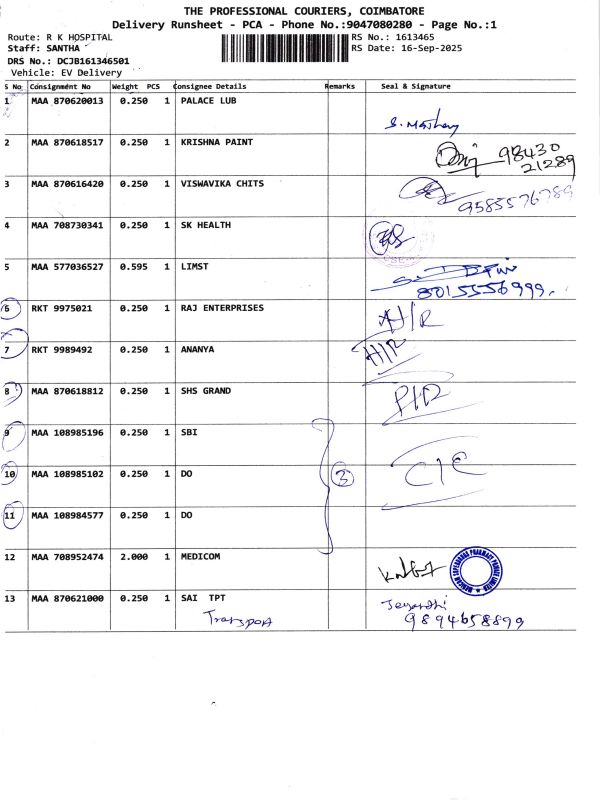 THE PROFESSIONAL COURIERS, COIMBATORE
Delivery Runsheet - PCA - Phone No.:9047080280 - Page No.:1
Route: R K HOSPITAL RS No.: 1613465
Staff: SANTHA RS Date: 16-Sep-2025
DRS No.: DCJB161346501
Vehicle: EV Delivery
S No Consignment No Weight PCS Consignee Details Remarks Seal & Signature
1 MAA 870620013 0.250 1 PALACE LUB
2 MAA 870618517 0.250 1 KRISHNA PAINT 98430
21289
3 MAA 870616420 0.250 1 VISWAVIKA CHITS
9585576789
4 MAA 708730341 0.250 1 SK HEALTH
5 MAA 577036527 0.595 1 LIMST
8015556999.
6 RKT 9975021 0.250 1 RAJ ENTERPRISES
7 RKT 9989492 0.250 1 ANANYA
8 MAA 870618812 0.250 1 SHS GRAND
9 MAA 108985196 0.250 1 SBI
10 MAA 108985102 0.250 1 DO 3
11 MAA 108984577 0.250 1 DO
12 MAA 708952474 2.000 1 MEDICOM
13 MAA 870621000 0.250 1 SAI TPT
Transport 9894658899